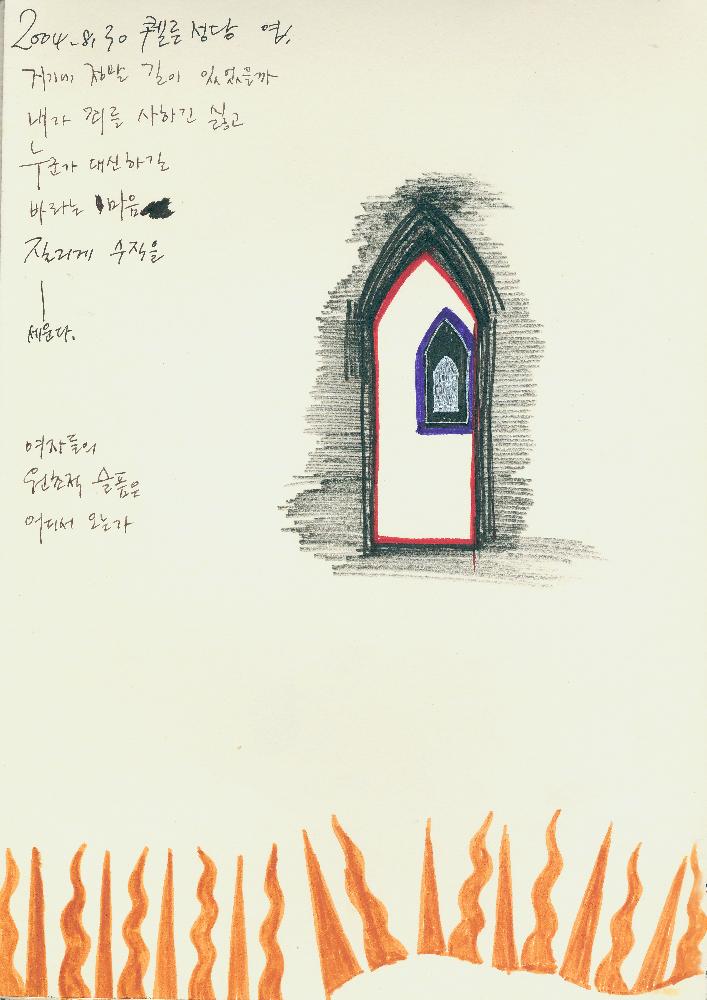 2004.8.30 쾰른 성당 옆.
거기에 정말 길이 있었을까
내가 죄를 사하긴 싫고
누군가 대신하길
바라는 마음
질리게 수직을
세운다.
여자들의
원초적 슬픔은
어디서 오는가